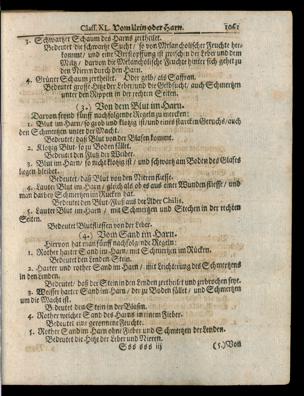 Class. XL. Vom Urin oder Harn. 1061
3. Schwartzer Schaum des Harns zertheilet.
Bedeutet die schwartze Sucht / so von Melancholischer Feuchte her-
kommt / und eine Verstopffung ist zwischen der Leber und dem
Miltz / darvon die Melancholische Feuchte hinter sich gehet zu
den Nieren durch den Harn.
4. Grüner Schaum zertheilet. Oder gelb / als Saffran.
Bedeutet grosse Hitz der Leber / und die Gelbsucht / auch Schmertzen
unter den Rippen in der rechten Seiten.
(3.) Von dem Blut im Harn.
Darvon seynd fünff nachfolgende Regeln zu mercken:
1. Blut im Harn / so grob und klotzig ist / und einen starcken Geruch / auch
den Schmertzen unter der Macht.
Bedeutet / daß Blut von der Blasen kommt.
2. Klotzig Blut / so zu Boden fällt.
Bedeutet den Fluß der Weiber.
3. Blut im Harn / so nicht klotzig ist / und schwartz am Boden des Glases
liegen bleibet.
Bedeutet / daß Blut von den Nieren fliesse.
4. Lauter Blut im Harn / gleich als ob es aus einer Wunden fliesse / und
man darbey Schmertzen im Rücken hat.
Bedeutet den Blut-Fluß aus der Ader Chilis.
5. Lauter Blut im Harn / mit Schmertzen und Stechen in der rechten
Seiten.
Bedeutet Blutfliessen von der Leber.
(4.) Vom Sand im Harn.
Hiervon hat man fünff nachfolgende Regeln:
1. Rother harter Sand im Harn / mit Schmertzen im Rücken.
Bedeutet den Lenden-Stein.
2. Harter und rother Sand im Harn / mit Leichterung des Schmertzens
in den Lenden.
Bedeutet / daß der Stein in den Lenden zertheilet und zerbrochen seye.
3. Weisser harter Sand im Harn / der zu Boden fället / und Schmertzen
um die Macht ist.
Bedeutet den Stein in der Blasen.
4. Rother weicher Sand des Harns in einem Fieber.
Bedeutet eine geronnene Feuchte.
5. Rother Sand im Harn ohne Fieber und Schmertzen der Lenden.
Bedeutet die Hitze der Leber und Nieren.
Sss sss iij (5.) Von